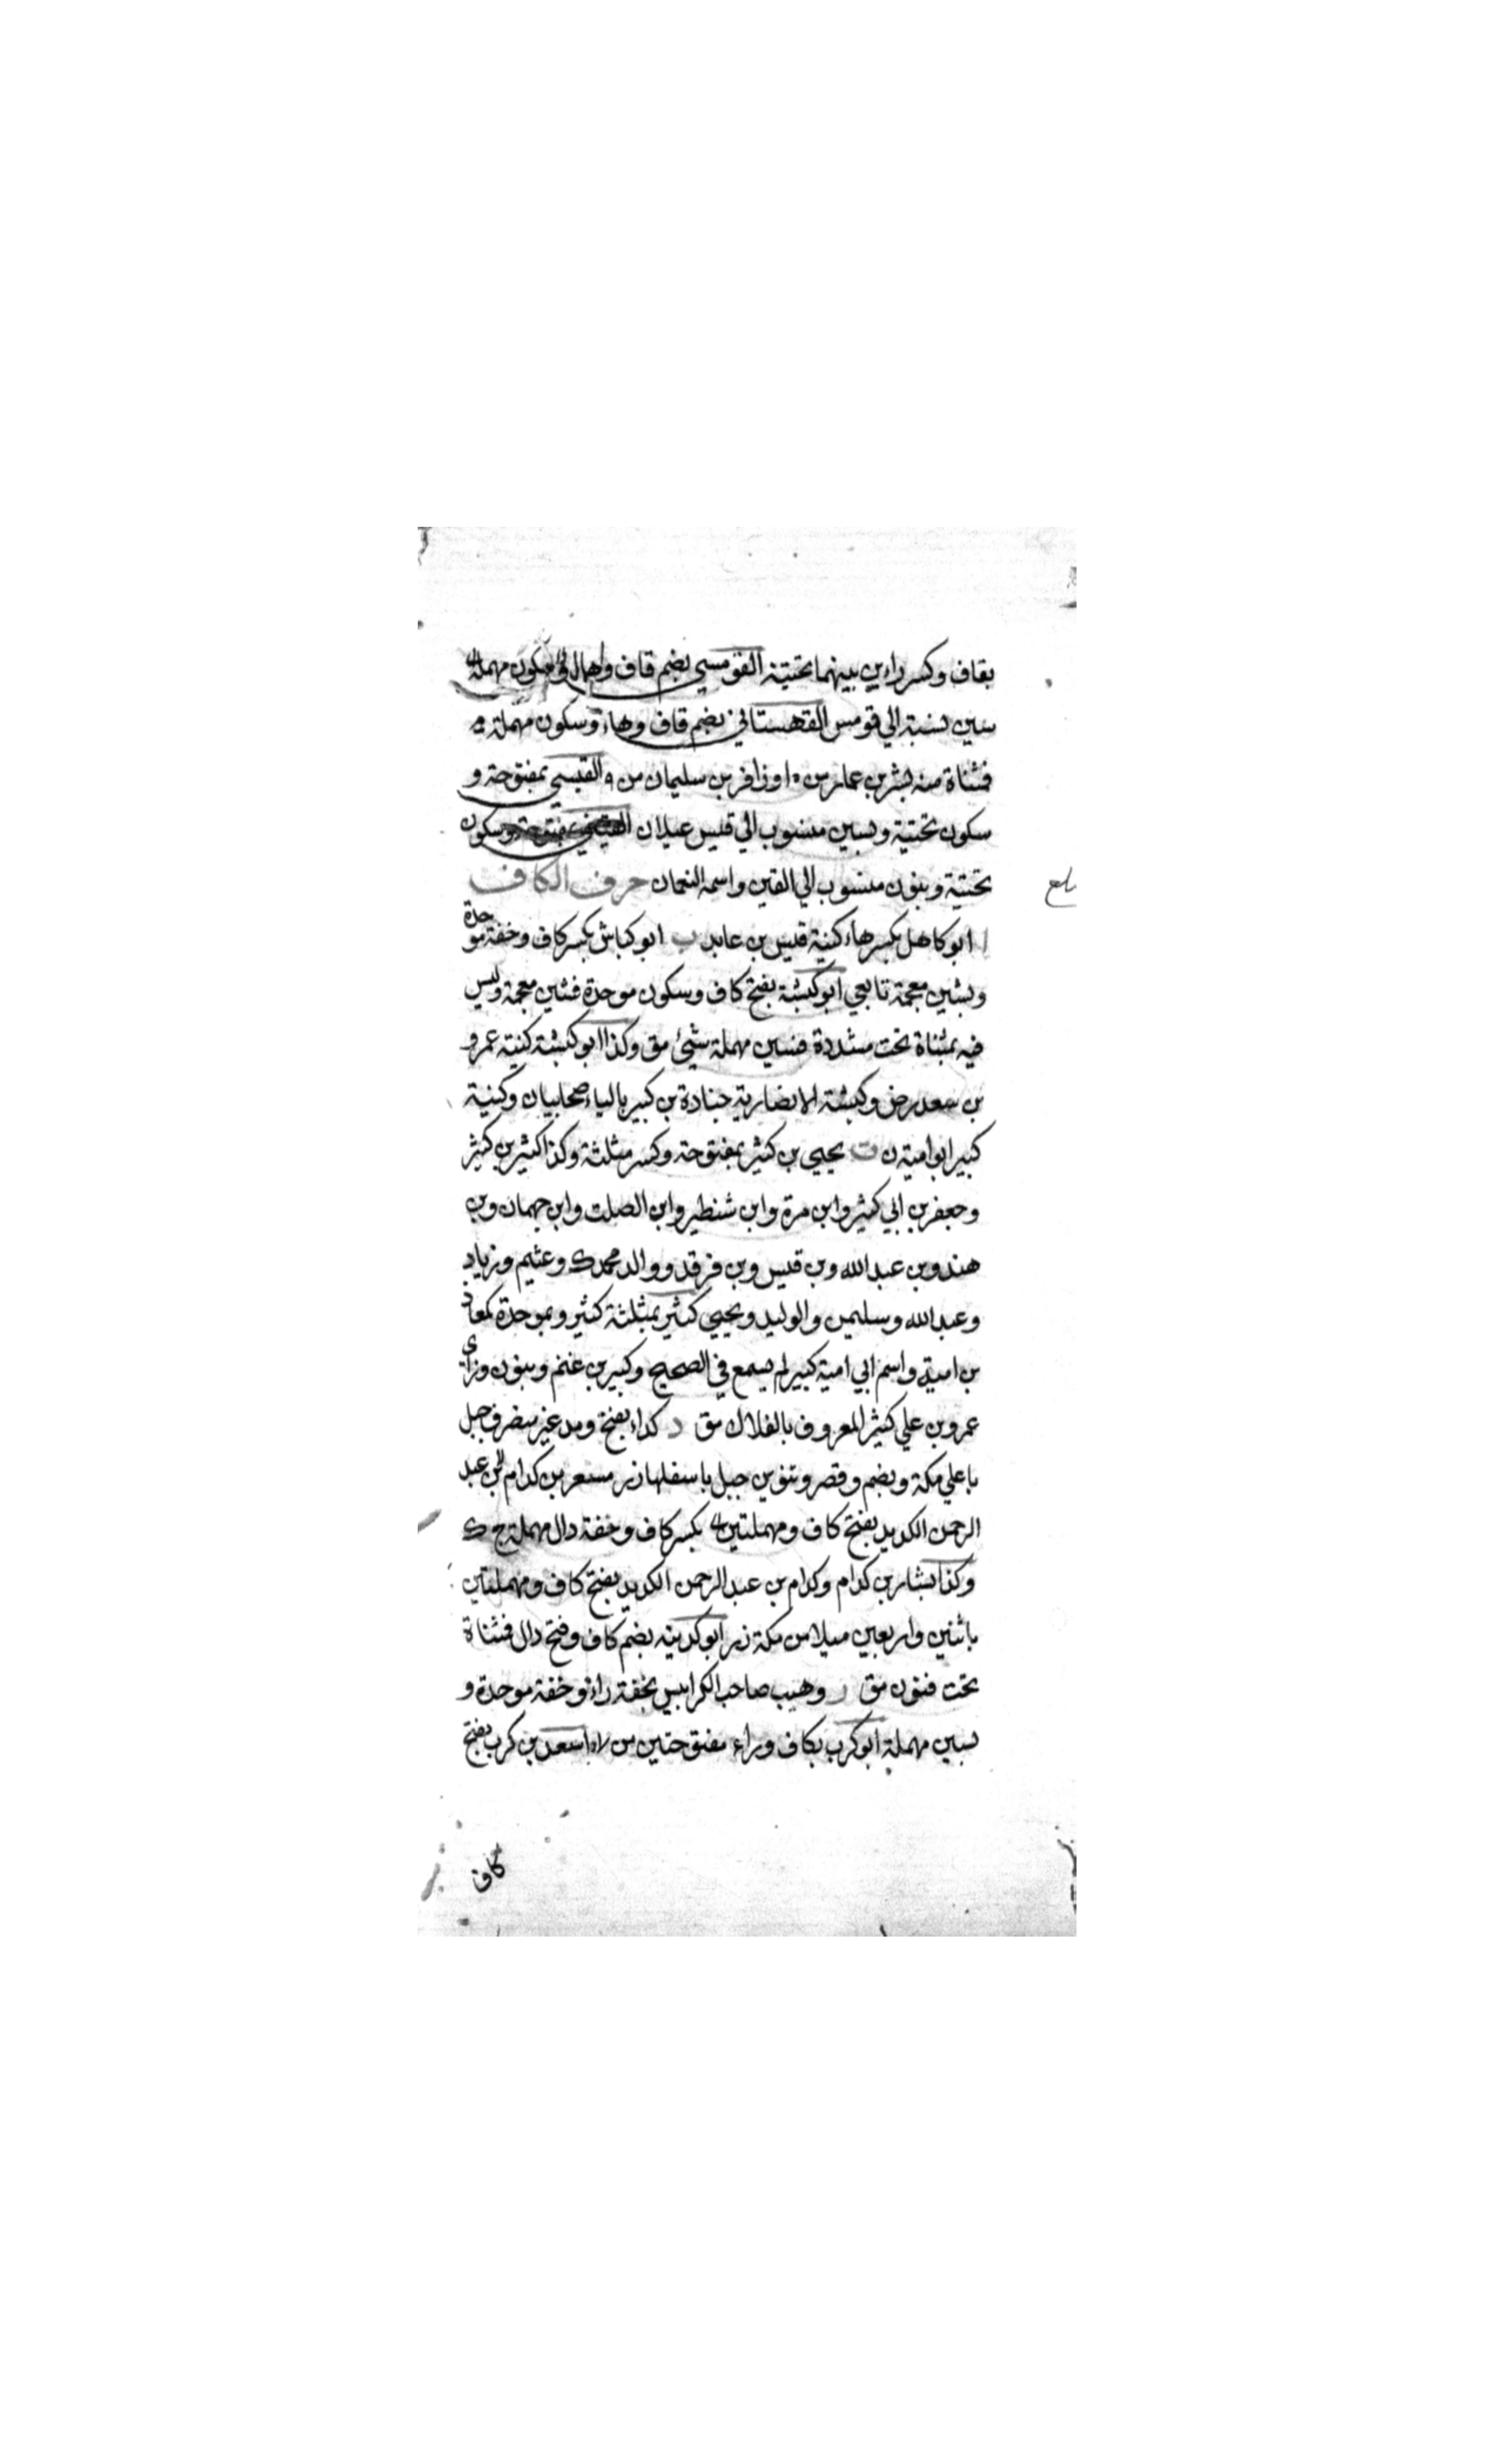 بقاف وكسر راءين بينهما تحتية القومسي بضم قاف واهمال سين
سين نسبة الي قومس القهستاني بضم قاف وهاء وسكون مهملة
فمثناة منه بشر بن عمار من زافر بن سليمان من القيسي بمفتوحة و
سكون تحتية وبسين منسوب الي قيس عيلان وسكون
تحتية وبنون منسوب الي القين واسمه النعمان حرف الكاف
ا ابو كاهل بكسر هاء كنية قيس بن عايد ب ابو كباش بكسر كاف وخفة موحدة
وبشين معجمة تابعي ابو كبشة بفتح كاف وسكون موحدة فشين معجمة وليس
فيه بمثناة تحت مشددة فسين مهملة شئ مق وكذا ابو كبشة كنية عمرو
بن سعد رض وكبشة الانصارية جنادة بن كبير بالياء صحابيان وكنية
كبير ابو امية ن ث يحيي بن كثير بمفتوحة وكسر مثلثة وكذا كثير بن كثير
وجعفر بن ابي كثير وابن مرة وابن شنظير وابن الصلت وابن جهمان وبن
هند وبن عبد الله وبن قيس وبن فرقد ووالد محمد ك وعثيم وزياد
وعبد الله وسليمن والوليد ويحيي كثير بمثلثة كثير وبموحدة
بن امية واسم ابي امية كبير لم يسمع في الصحيح وكبير بن غنم وبنون وزاي
عمرو بن علي كنيز المعروف بالفلاك مق د كداء بفتح ومد غير منصرف جبل
باعلي مكة وبضم وقصر وتنوين جبل باسفلها زر مسعر بن كدام بن عبد
الرحمن الكديد بفتح كاف ومهملتين بكسر كاف وخفة دال مهملة ج ك
وكذا بشار بن كدام وكدام بن عبد الرحمن الكديد بفتح كاف ومهملتين
باثنين واربعين ميلا من مكة زر ابو كدينه بضم كاف وفتح دال فمثناة
تحت فنون مق ر وهيب صاحب الكرابيس بخفة راء وخفة موحدة و
بسين مهملة ابو كرب بكاف وراء مفتوحتين من اسعد بن كرب بفتح
كاف